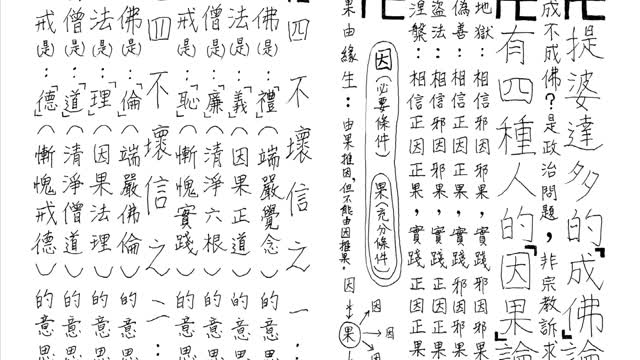 卍提婆達多的『成佛論
成不成佛?是政治問題,非宗教訴求
卍有四種人的『因果論
地獄:相信邪因邪果,實踐邪因邪果
偽善:相信正因正果,實踐邪因邪果
盜法:相信邪因邪果,實踐正因正果
涅槃:相信正因正果,實踐正因正果
卍
因(必要條件) 果(充分條件)
果由緣生:由果推因,但不能由因推果。
因
果
因
因
因
四不壞信之一:
佛(是):「禮」(端嚴覺念)的意思
法(是):「義」(因果正道)的意思
僧(是):「廉」(清淨六根)的意思
戒(是):「恥」(慚愧實踐)的意思
四不壞信之二:
佛(是):「倫」(端嚴佛倫)的意思
法(是):「理」(因果法理)的意思
僧(是):「道」(清淨僧道)的意思
戒(是):「德」(慚愧戒德)的意思